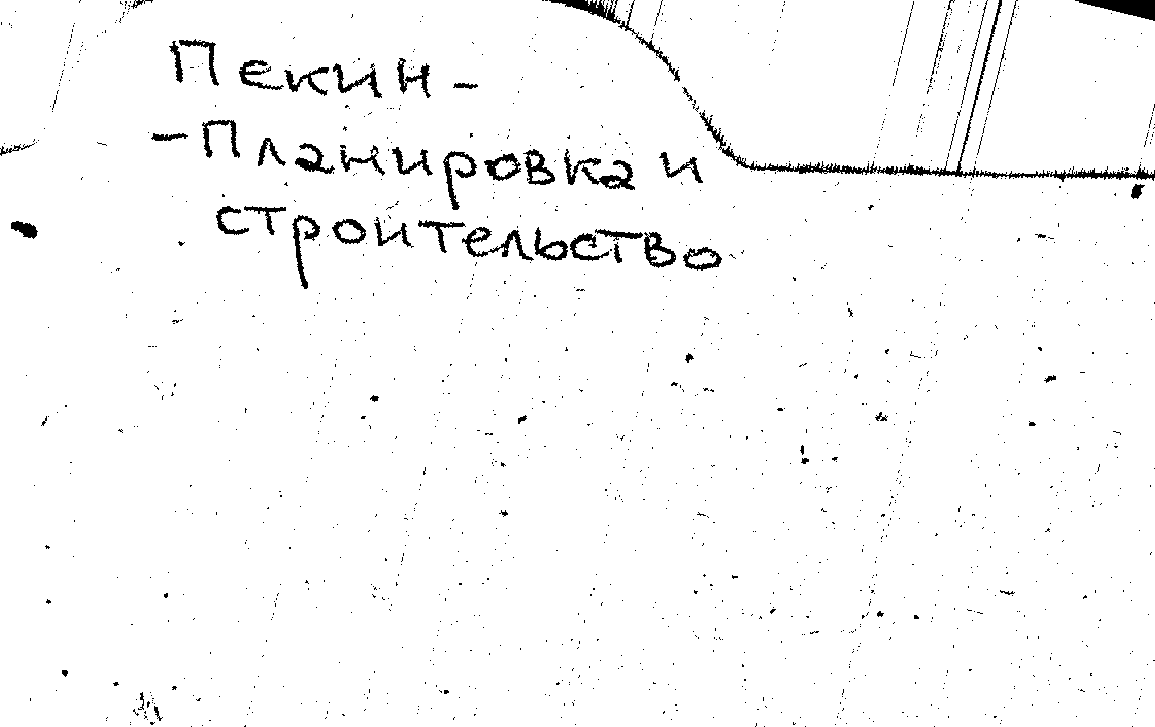 Пекин -
- Планировка и
строительство